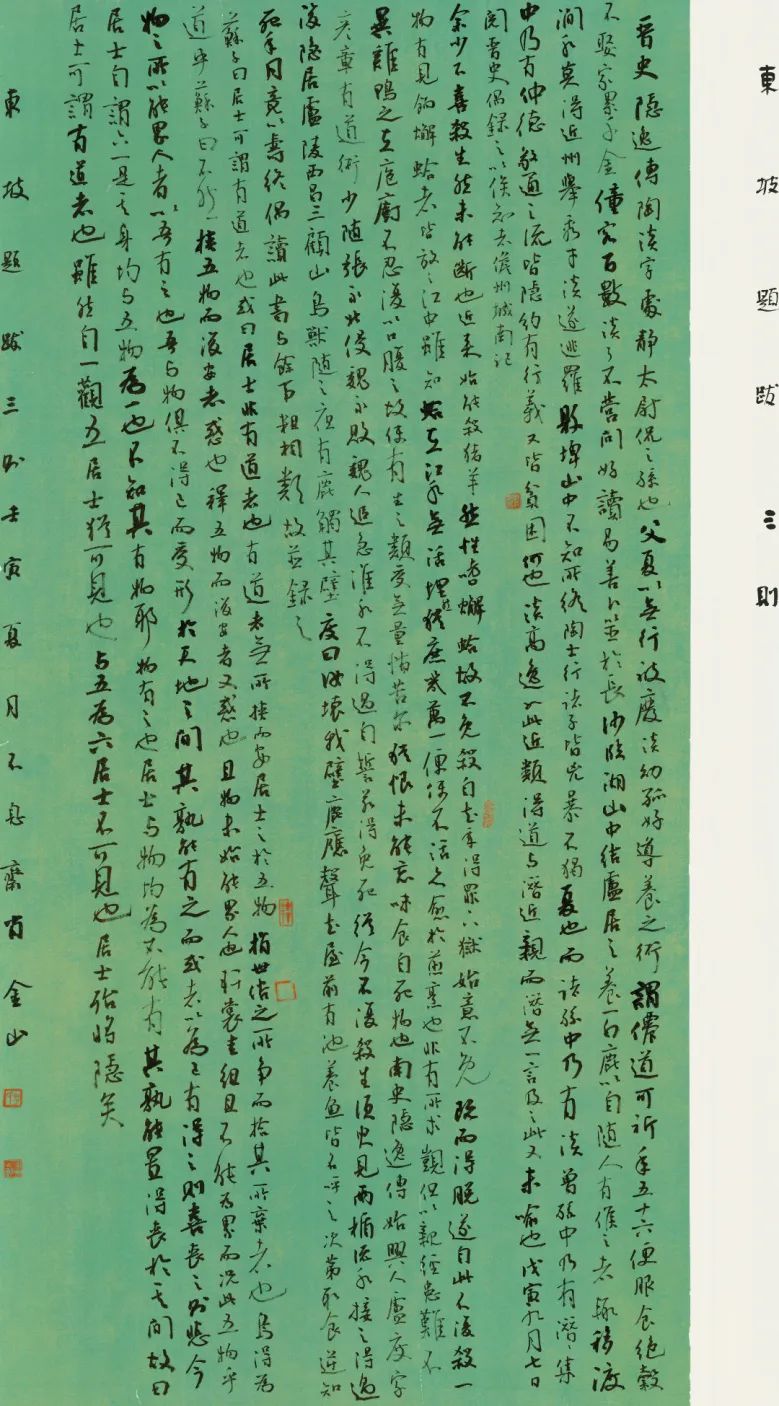 東坡題跋三則
晋史隱逸傳陶淡字處静太尉侃之孫也父夏以無行被廢淡幼孤好導養之術謂僊道可祈年五十六便服食絶穀
不娶家累千金僮客百數淡了不營問好讀易善卜筮於長沙臨湘山中結廬居之養一白鹿以自随人有候之者輒移渡
澗水莫得近州舉秀才淡遂逃羅縣埤山中不知所終陶士行諸子皆凶暴不獨夏也而諸孫中乃有淡曾孫中乃有潛潛集
中乃有仲德敬通之流皆隱約有行義又皆貧困何也淡高逸如此近類得道与潛近親而潛無一言及之此又未喻也戊寅九月七日
閲晋史偶録之以俟知者儋州城南記
余少不喜殺生然未能断也近来始能不殺猪羊然性嗜蠏蛤故不免殺自去年得罪下獄始意不免既而得脱遂自此不復殺一
物有見餉蠏蛤者皆放之江中雖知蛤在江水無活理然猶庶幾萬一便使不活亦愈於煎烹也非有所求覬但以親經患難不
異雞鴨之在庖廚不忍復以口腹之故使有生之類受無量怖苦爾猶恨未能忘味食自死物也南史隱逸傳始興人盧度字
彦章有道術少随張永北侵魏永敗魏人追急淮水不得過自誓若得免死從今不復殺生須臾見兩楯流来接之得過
後隐居廬陵西昌三顧山鳥獸随之夜有鹿觸其壁度曰汝壊我壁鹿應聲去屋前有池養魚皆名呼之次第取食逆知
死年月竟以壽終偶讀此書与餘事粗相類故並録之
蘇子曰居士可謂有道者也或曰居士非有道者也有道者無所挟而安居士之於五物捐世俗之所争而拾其所棄者也烏得為
道乎蘇子曰不然挟五物而後安者惑也釋五物而後安者又惑也且物未始能累人也軒裳圭組且不能為累而况此五物乎
物之所以能累人者以吾有之也吾与物俱不得已而受形於天地之間其孰能有之而或者以為己有得之則喜喪之則悲今
居士自謂六一是其身均与五物為一也不知其有物耶物有之也居士与物均為不能有其孰能置得喪於其間故曰
居士可謂有道者也雖然自一觀五居士猶可見也与五為六居士不可見也居士殆將隱矣
東坡題跋三則壬寅夏月不息齋肖金山